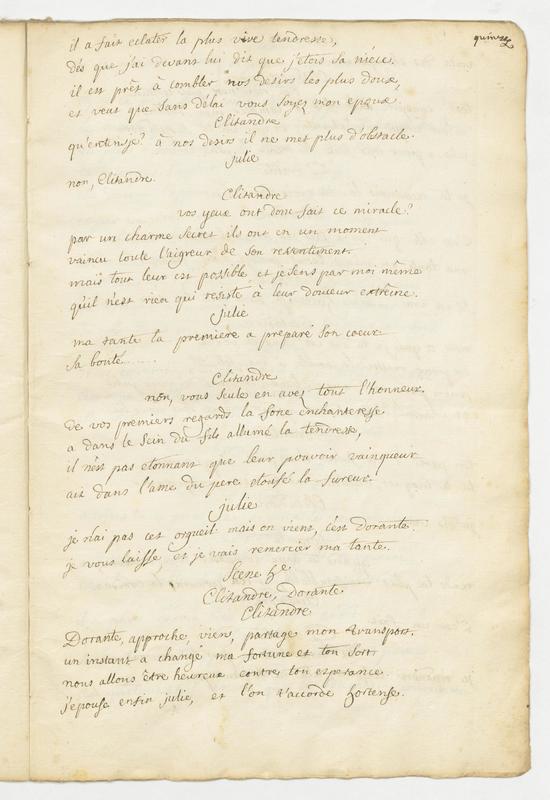 quinze
il a fait eclater la plus vive tendresse,
dès que j'ai devant lui dit que j'etois sa niéce.
il est prêt à combler nos desirs les plus doux,
et veut que sans délai vous soyez mon epoux.
Clitandre
qu'entens-je? à nos desirs il ne met plus d'obstacle.
julie
non, Clitandre.
Clitandre
vos yeux ont donc fait ce miracle?
par un charme secret ils ont en un moment
vaincu toute l'aigreur de son ressentiment.
mais tout leur est possible et je sens par moi même
qu'il n'est rien qui resiste à leur douceur extrême.
julie
ma tante la premiere a preparé son coeur
sa bonté......
Clitandre
non, vous seule en avez tout l'honneur.
de vos premiers regards la force enchanteresse
a dans le sein du fils allumé la tendresse,
il n'est pas etonnant que leur pouvoir vainqueur
ait dans l'ame du pere etoufé la fureur.
julie
je n'ai pas cet orgueil mais on vient, c'est Dorante.
je vous laisse, et je vais remercier ma tante.
Scene
Clitandre, Dorante
Clitandre
Dorante, approche, vien, partage mon transport.
un instant a changé ma fortune et ton sort.
nous allons être heureux contre ton esperance.
j'epouse enfin julie, et l'on t'accorde hortense.